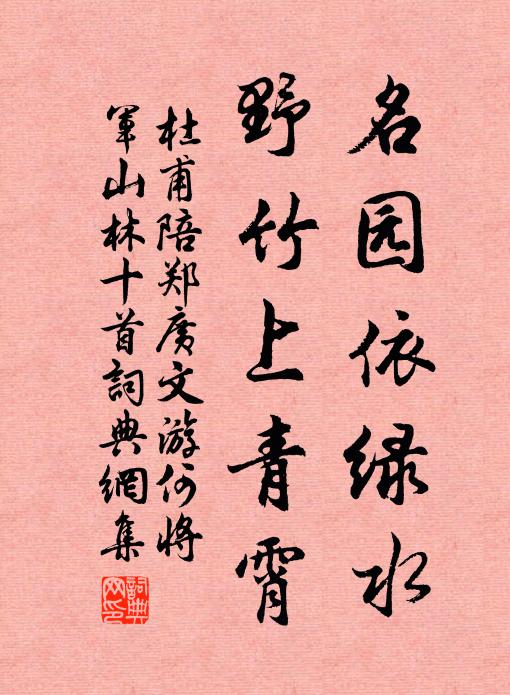 名园依绿水
野竹上青霄
杜甫陪郑廣文游何将
軍山林十首詞典網集